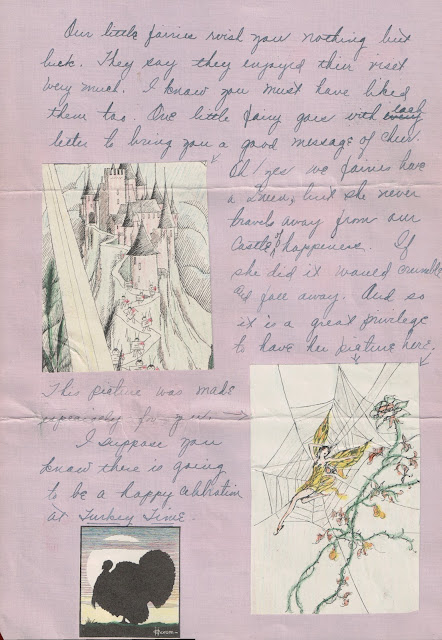 Our little fairies wish you nothing but
luck. They say they enjoyed thier viset
very much. I know you must have liked
them too. One little fairy goes with each
letter to bring you a good message of Cheer.
Oh! yes we fairies have
a Queen, but she never
travels away from our
Castle of happiness. If
she did it would crumble
and fall away. And so
it is a great privilege
to have her picture here.
This picture was made
expressly for you. →
I suppose you
know there is going
to be a happy celibration
at Turkey Time.